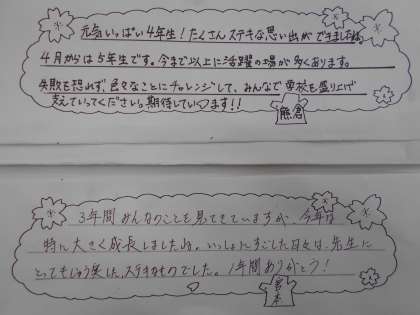 元気いっぱい4年生！たくさんステキな思い出ができましたね。
4月からは5年生です。今まで以上に活躍の場が多くあります。
失敗を恐れず、色々なことにチャレンジして、みんなで学校を盛り上げ
支えていってください。期待しています!!
熊倉
3年間みんなのことを見てきていますが、今年は
特に大きく成長しましたね。いっしょにすごした日々は、先生に
とってもしゅう実した、ステキなものでした。1年間ありがとう！